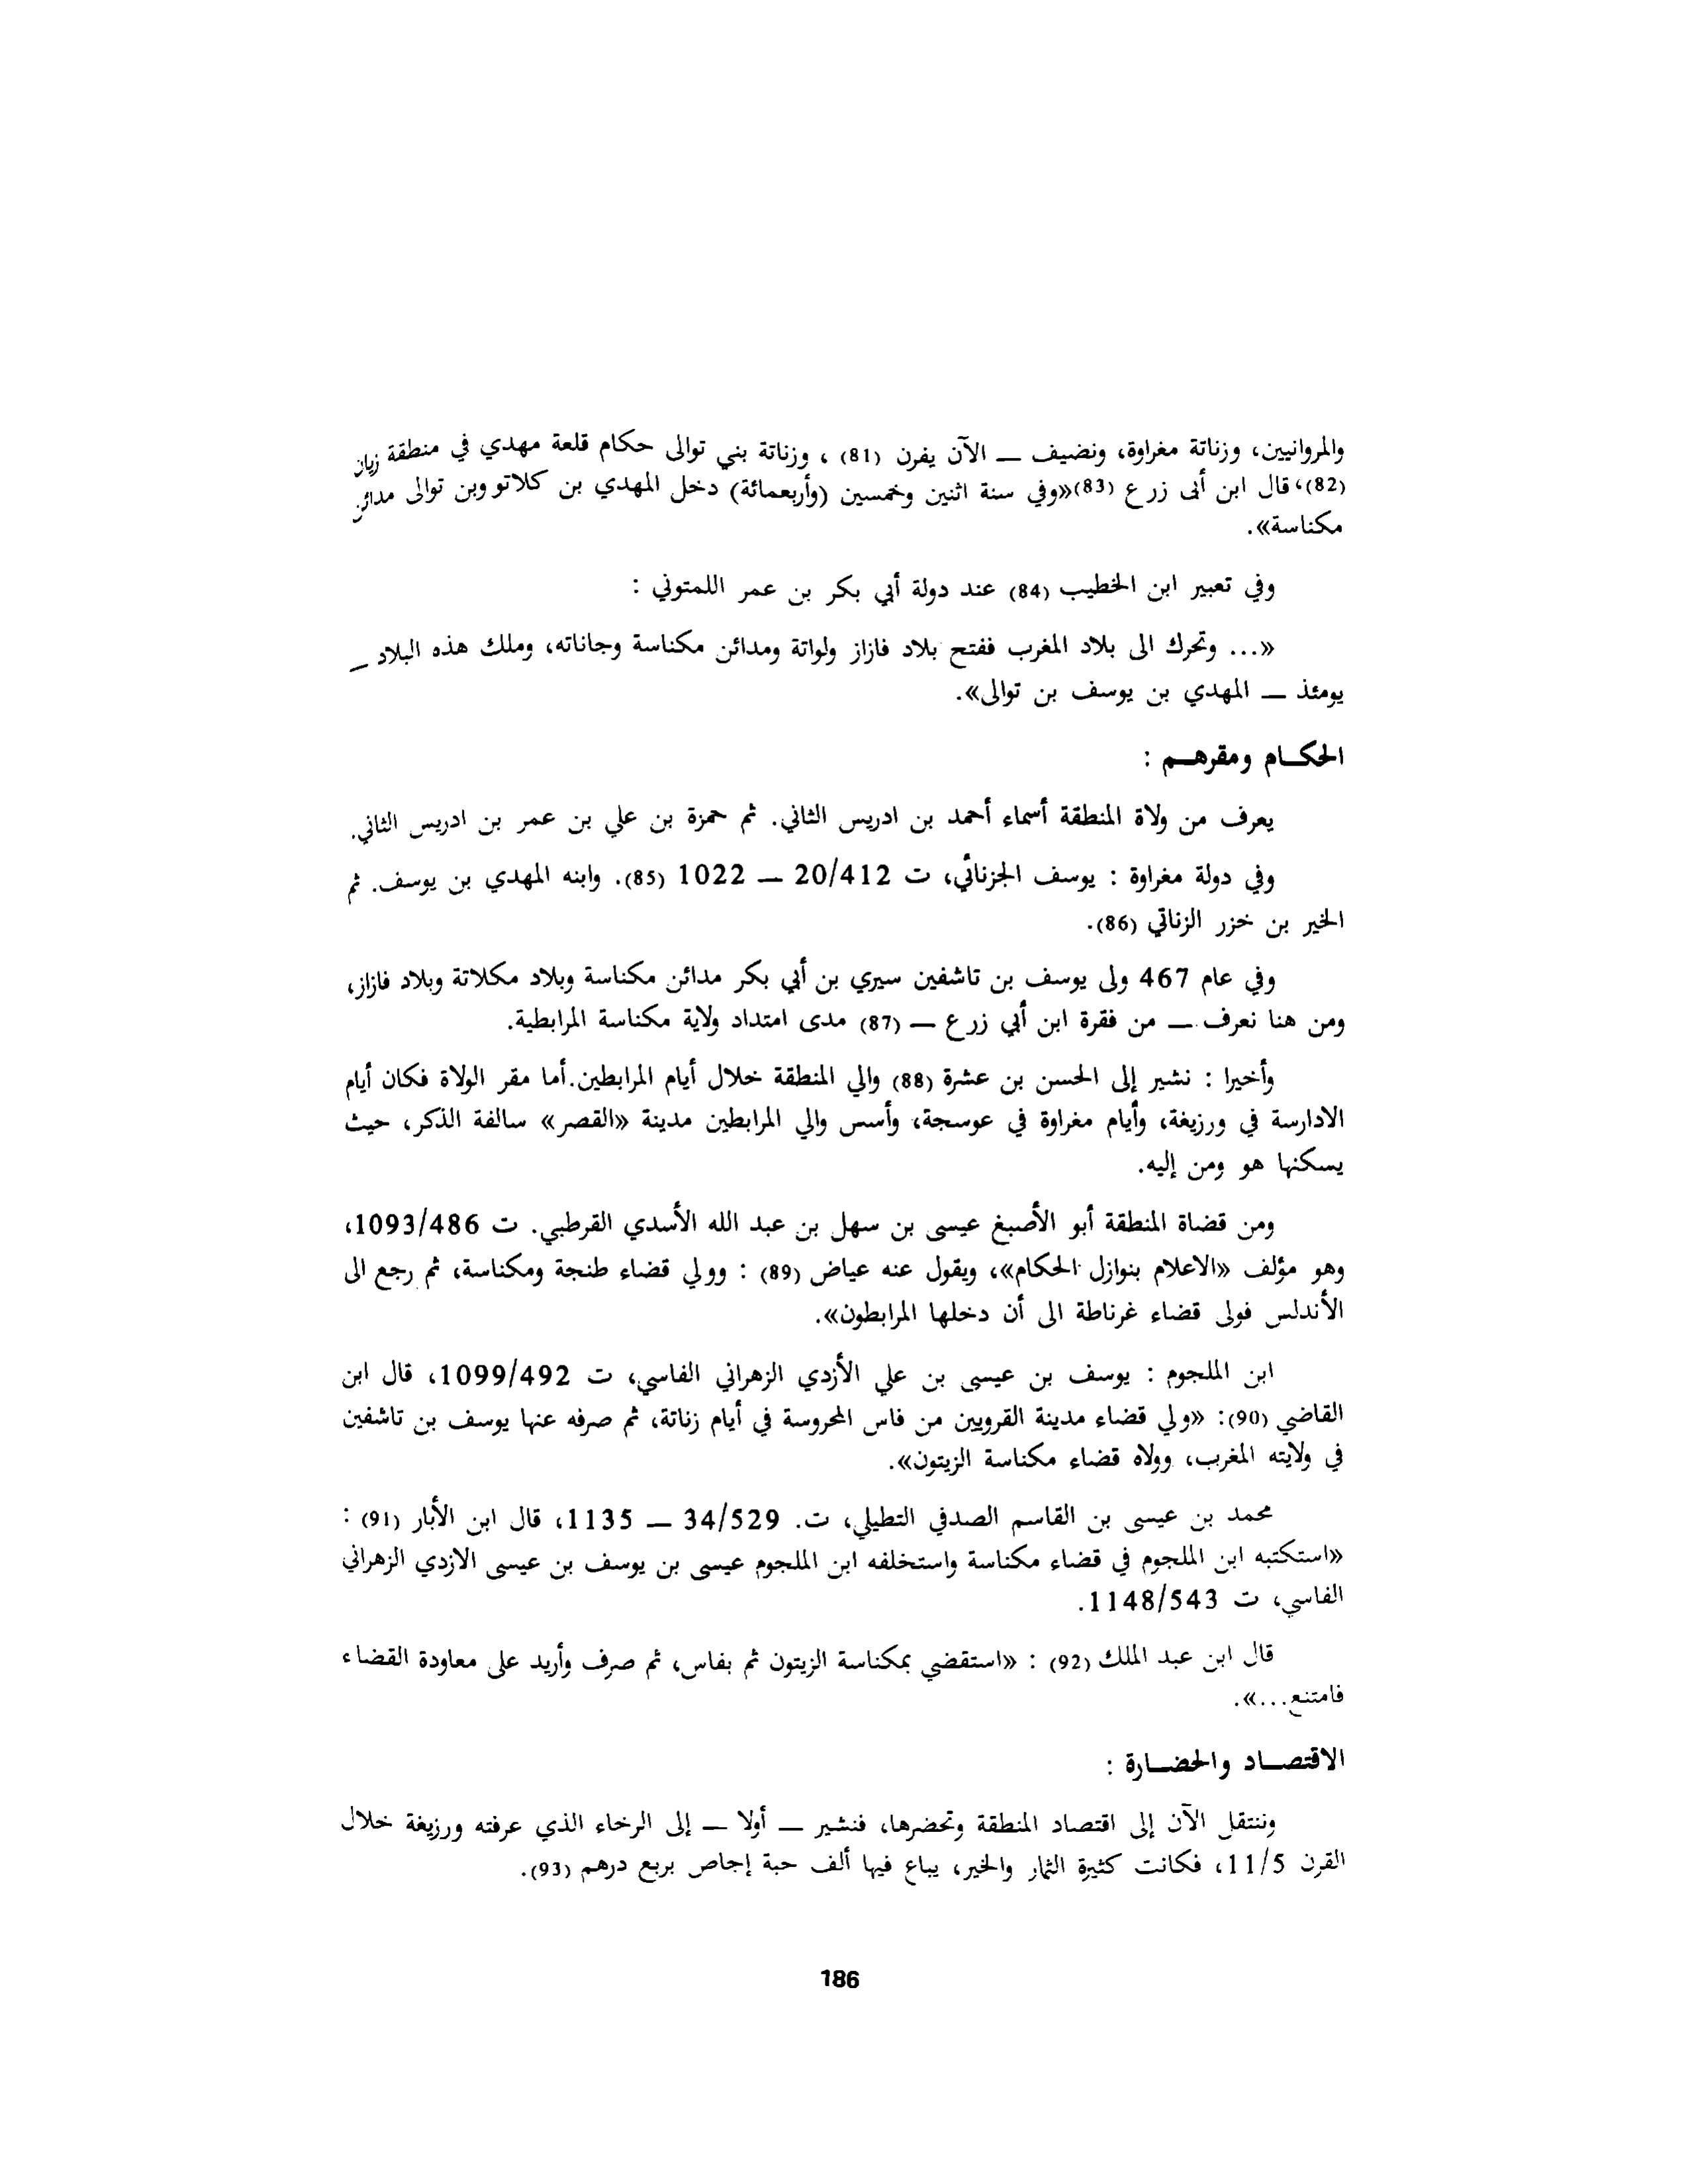 والمروانيين، وزناتة مغراوة، ونضيف — الآن يفرن (81) ، وزناتة بني توالى حكام قلعة مهدي في منطقة زيان
(82)، قال ابن أبى زرع (83) «وفي سنة اثنين وخمسين (وأربعمائة) دخل المهدي بن كلاتو وبن توالى مدائن
مكناسة».
وفي تعبير ابن الخطيب (84) عند دولة أبي بكر بن عمر اللمتوني :
«... وتحرك الى بلاد المغرب ففتح بلاد فازاز ولواتة ومدائن مكناسة وجاناته، وملك هذه البلاد —
يومئذ — المهدي بن يوسف بن توالى».
الحكـام ومقرهـم :
يعرف من ولاة المنطقة أسماء أحمد بن ادريس الثاني. ثم حمزة بن علي بن عمر بن ادريس الثاني.
وفي دولة مغراوة : يوسف الجزنائي، ت 20/412 — 1022 (85). وابنه المهدي بن يوسف. ثم
الخير بن خزر الزناتي (86).
وفي عام 467 ولى يوسف بن تاشفين سيري بن أبي بكر مدائن مكناسة وبلاد مكلاتة وبلاد فازاز،
ومن هنا نعرف — من فقرة ابن أبي زرع — (87) مدى امتداد ولاية مكناسة المرابطية.
وأخيرا : نشير إلى الحسن بن عشرة (88) والي المنطقة خلال أيام المرابطين.أما مقر الولاة فكان أيام
الادارسة في ورزيغة، وأيام مغراوة في عوسجة، وأسس والي المرابطين مدينة «القصر» سالفة الذكر، حيث
يسكنها هو ومن إليه.
ومن قضاة المنطقة أبو الأصبغ عيسى بن سهل بن عبد الله الأسدي القرطبي. ت 1093/486،
وهو مؤلف «الاعلام بنوازل الحكام»، ويقول عنه عياض (89) : وولي قضاء طنجة ومكناسة، ثم رجع الى
الأندلس فولى قضاء غرناطة الى أن دخلها المرابطون».
ابن الملجوم : يوسف بن عيسى بن علي الأزدي الزهراني الفاسي، ت 1099/492، قال ابن
القاضي (90): «ولي قضاء مدينة القرويين من فاس المحروسة في أيام زناتة، ثم صرفه عنها يوسف بن تاشفين
في ولايته المغرب، وولاه قضاء مكناسة الزيتون».
محمد بن عيسى بن القاسم الصدفي التطيلي، ت. 34/529 — 1135، قال ابن الأبار (91) :
«استكتبه ابن الملجوم في قضاء مكناسة واستخلفه ابن الملجوم عيسى بن يوسف بن عيسى الازدي الزهراني
الفاسي، ت 1148/543.
قال ابن عبد الملك (92) : «استقضي بمكناسة الزيتون ثم بفاس، ثم صرف وأريد على معاودة القضاء
فامتنع...».
الاقتصـاد والحضـارة :
وننتقل الآن إلى اقتصاد المنطقة وتحضرها، فنشير — أولا — إلى الرخاء الذي عرفته ورزيغة خلال
القرن 11/5، فكانت كثيرة الثمار والخير، يباع فيها ألف حبة إجاص بربع درهم (93).
186